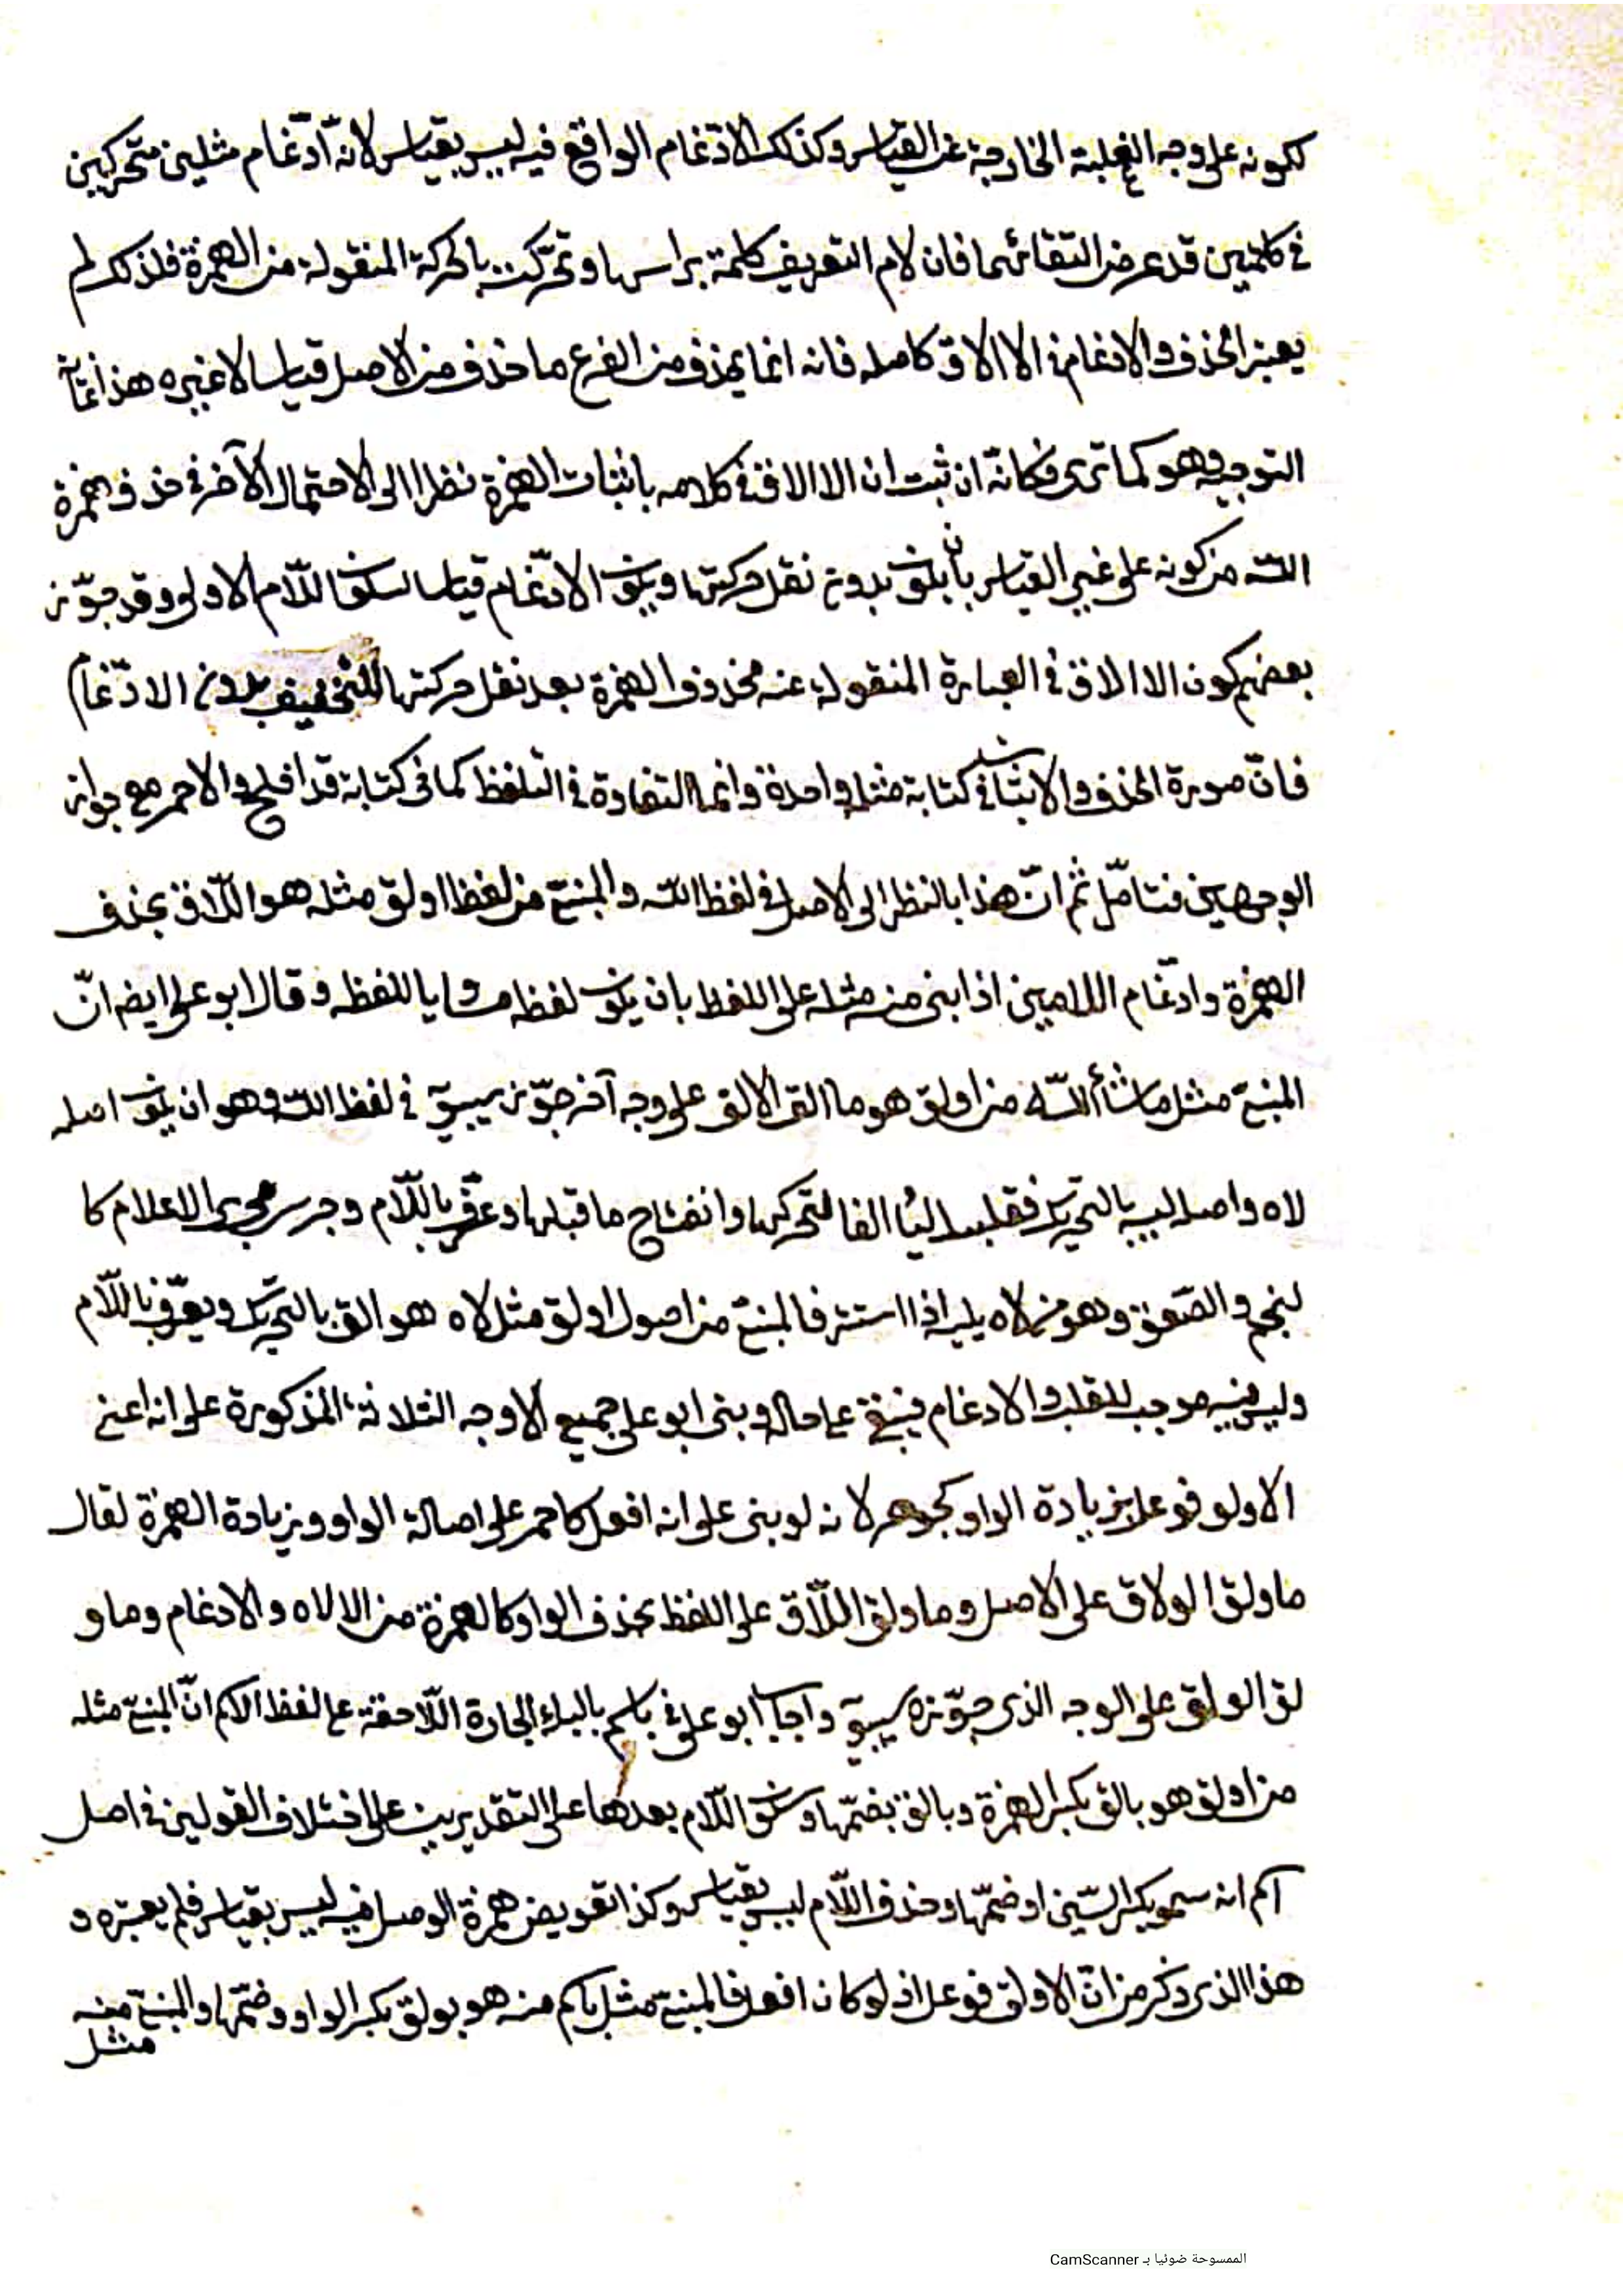 لكونه على وجه الغلبة الخارجة عن القياس وكذلك الادّغام الواقع فيه ليس بقياس لانه ادّغام مثلين متحركين
في كلمتين قد عرض التقائهما فان لام التعريف كلمة براسها وتحرّكت بالحركة المنقولة من الهمزة فلذلك لم
يعتبر الحذف والادغام في الالاق كاصله فانه انما يحذف من الفرع ما حذف من الاصل قياسا لاغيره هذا غاية
التوجيه وهو كما ترى وكانّه ان ثبت ان الالاق في كلامه باثبات الهمزة نظرا الى الاحتمال الآخر في حذف همزة
الله من كونه على غير القياس بان يكون بدون نقل حركتها ويكون الادّغام قياسا لسكون اللّام الاولى وقد جوّز
بعضهم كون الالاق في العبارة المنقولة عنه محذوف الهمزة بعد نقل حركتها للتخفيف بدون الادّغام
فانّ صورة الحذف والاثبات في كتابة مثله واحدة وانما التفاوة في التلفظ كما في كتابة قد افلح والاحمر مع جواز
الوجهين فتامّل ثم انّ هذا بالنظر الى الاصل في لفظ الله والمبنيّ من لفظ اولق مثله هو اللّاق بحذف
الهمزة وادغام اللامين اذا بنى منه مثله على اللفظ بان يكون لفظه مساويا للفظه وقال ابو على ايضا انّ
المبنيّ مثل ما شأ اللّه من اولق هو ما القَ الالق على وجه آخر جوّزه سيبويه في لفظ الله وهو ان يكون اصله
لاه واصله ليه بالتحريك فقلبت اليا الفا لتحركها وانفتاح ما قبلها وعرّف باللّام وجرى مجرى الاعلام كا
لنجم والصّعق وهو من لاه يليه اذا استتر فالمبنيّ من اصول اولق مثل لاه هو الق بالتحريك ويعرّف باللّام
وليس فيه موجب للقلب والادغام فيبقى على حاله وبنى ابو على جميع الاوجه الثلاثة المذكورة على انه اعنى
الاولق فوعل بزيادة الواو كجوهر لانه لو بنى على انه افعل كاحمر على اصالة الواو وزيادة الهمزة لقال
ما ولق الولاق على الاصل وما ولق اللّاق على اللفظ بحذف الواو كالهمزة من الالاه والادغام وما و
لق الولق على الوجه الذى جوّزه سيبويه واجاب ابو على في باسم بالباء الجارة اللّاحقة على لفظ الاسم انّ المبنيّ مثله
من اولق هو بالق بكسر الهمزة وبالق بضمّها وسكون اللّام بعدها على التقديرين على اختلاف القولين في اصل
اسم انه سمو بكسر السّين او ضمّها وحذف اللّام ليس بقياس وكذا تعويض همزة الوصل فيه ليس بقياس فلم يعتبره و
هذا الذى ذكر من انّ الاولق فوعل اذ لو كان افعل فالمبنيّ مثل باسم منه هو بولق بكسر الواو وضمّها والمبنيّ منه
مثل
الممسوحة ضوئيا بـ CamScanner